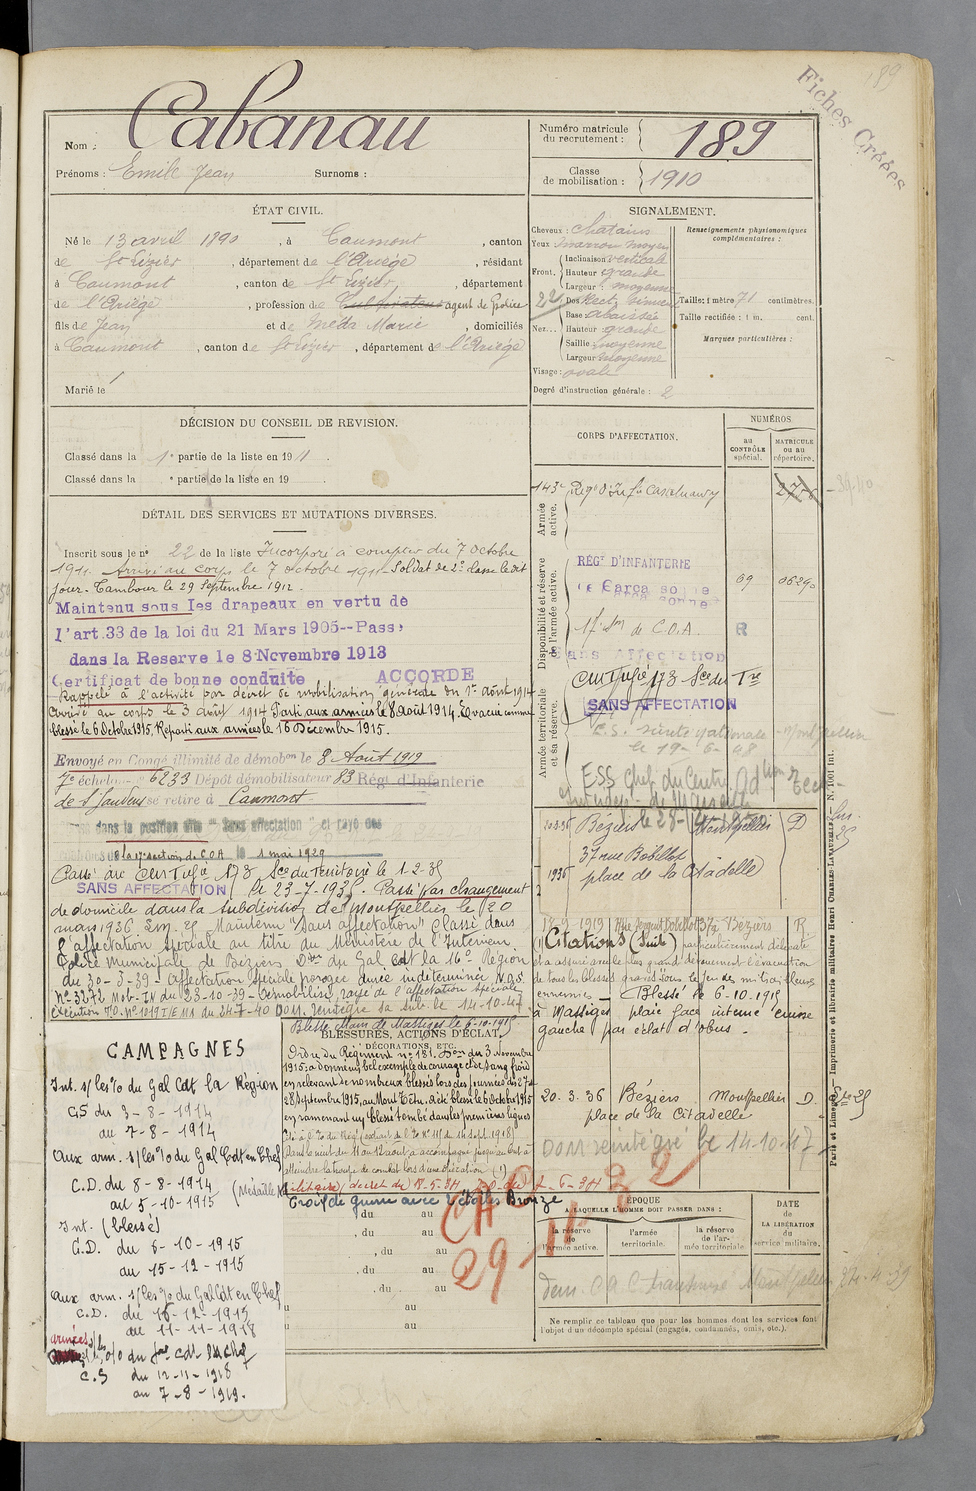 189
Fiches Créées
Nom : Cabanau
Prénoms : Emile Jean Surnoms :
Numéro matricule du recrutement : 189
Classe de mobilisation : 1910
ÉTAT CIVIL.
Né le 13 avril 1890, à Caumont, canton
de St Lizier, département de l'Ariège, résidant
à Caumont, canton de St Lizier, département
de l'Ariège, profession de Cultivateur agent de police
fils de Jean et de Méda Marie, domiciliés
à Caumont, canton de St Lizier, département de l'Ariège
Marié le
SIGNALEMENT.
Cheveux : chatains
Yeux marron moyen
Front. Inclinaison verticale
Hauteur grande
Largeur : moyenne
Nez... Dos Rect. sinueux
Base : abaissée
Hauteur : grande
Saillie moyenne
Largeur moyenne
Visage : ovale
Degré d'instruction générale : 2
Renseignements physionomiques complémentaires :
Taille : 1 mètre 71 centimètres.
Taille rectifiée : 1 m. cent.
Marques particulières :
DÉCISION DU CONSEIL DE REVISION.
Classé dans la 1e partie de la liste en 1911.
Classé dans la e partie de la liste en 19 .
DÉTAIL DES SERVICES ET MUTATIONS DIVERSES.
Inscrit sous le no 22 de la liste Incorporé à compter du 7 octobre
1911. Arrivé au corps le 7 octobre 1911. Soldat de 2e classe le dit
jour. Tambour le 29 Septembre 1912.
Maintenu sous les drapeaux en vertu de
l'art. 33 de la loi du 21 Mars 1905--Passé
dans la Reserve le 8 Novembre 1913
Certificat de bonne conduite ACCORDE
Rappelé à l'activité par décret de mobilisation générale du 1er Août 1914
Arrivé au corps le 3 août 1914 Parti aux armées le 8 août 1914. Evacué comme
blessé le 6 Octobre 1915, Reparti aux armées le 16 Décembre 1915.
Envoyé en Congé illimité de démobon le 8 Août 1919
7e échelon 6233 Dépôt démobilisateur 83 Régt d'Infanterie
de St Gaudens se retire à Caumont
dans la position dite "Sans affectation" et rayé des
17e section de C.O.A. le 1 mai 1929
Passé au Centre 173 Sce du Territoire le 1-2-35
SANS AFFECTATION le 23-7-1935. Passé par changement
de domicile dans la subdivision de Montpellier le 20
mars 1936. Maintenu "Sans affectation" Classé dans
l'affectation Spéciale au titre du Ministère de l'Intérieur.
Police Municipale de Béziers Don du Gal Cdt la 16e Région
du 30-3-39 - Affectation spéciale prorogée durée indéterminée N.D.S.
No 3272 Mob-IN du 23-10-39 - Démobilisé, rayé de l'affectation spéciale
exécution no 1019 I/EMA du 24-7-40 DOM. réintégré sa sub. le 14-10-47
CORPS D'AFFECTATION.
NUMÉROS
au CONTRÔLE spécial.
MATRICULE ou au répertoire.
Armée active.
143e Régt d'Infie Castelnaudary 2776
Disponibilité et réserve de l'armée active.
RÉGt D'INFANTERIE
Carcassonne 69 06290
17e Son de C.O.A. R
Sans Affectation
Armée territoriale et sa réserve.
173 Sce du Tre
SANS AFFECTATION
le 19-6-48
20.3.36 Béziers Montpellier D
37 rue Bobillot
1936 place de la Citadelle
17-9-1919 Rue Sergent Bobillot 37 à Béziers R.
(1) Citations (Suite) particulièrement délégate
et a assuré avec le plus grand dévouement l'évacuation
de tous les blessés graves sous le feu des mitrailleuses
ennemies — Blessé le 6-10-1915
à Massiges plaie face interne cuisse
gauche par éclat d'obus -
20.3.36 Béziers Montpellier D.
place de la Citadelle
DOM réintégré le 14-10-47
Blessé Main de Massiges le 6-10-1915
BLESSURES, ACTIONS D'ÉCLAT,
DÉCORATIONS, ETC.
Ordre du Régiment no 181. Don du 3 Novembre
1915: a donné un bel exemple de courage et de sang froid
en relevant de nombreux blessés lors des journées des 27 et
28 Septembre 1915, au Mont Têtu. a été blessé le 6 Octobre 1915
en ramenant un blessé tombé dans les premières lignes
Croix de guerre avec 2 étoiles Bronze
du au
, du au
, du au
, du au
, du au
au
au
29-11-
CAMPAGNES
Int. s/les %o du Gal Cdt la Région
CS du 3-8-1914
au 7-8-1914
aux arm. s/les %o du Gal Cdt en Chef
C.D. du 8-8-1914
au 5-10-1915
Int. (blessé)
C.D. du 6-10-1915
au 15-12-1915
aux arm. s/les %o du Gal Cdt en Chef
C.D. du 16-12-1915
au 11-11-1918
armées s/les o/o du Gal Cdt en Chef
C.S du 12-11-1918
au 7-8-1919.
ÉPOQUE
A LAQUELLE L'HOMME DOIT PASSER DANS :
la réserve de l'armée active.
l'armée territoriale.
la réserve de l'armée territoriale.
DATE de LA LIBÉRATION du service militaire.
Ne remplir ce tableau que pour les hommes dont les services font
l'objet d'un décompte spécial (engagés, condamnés, omis, etc.).
Paris et Limoges. — Imprimerie et librairie militaires Henri CHARLES-LAVAUZELLE. — N. 1001 Int.